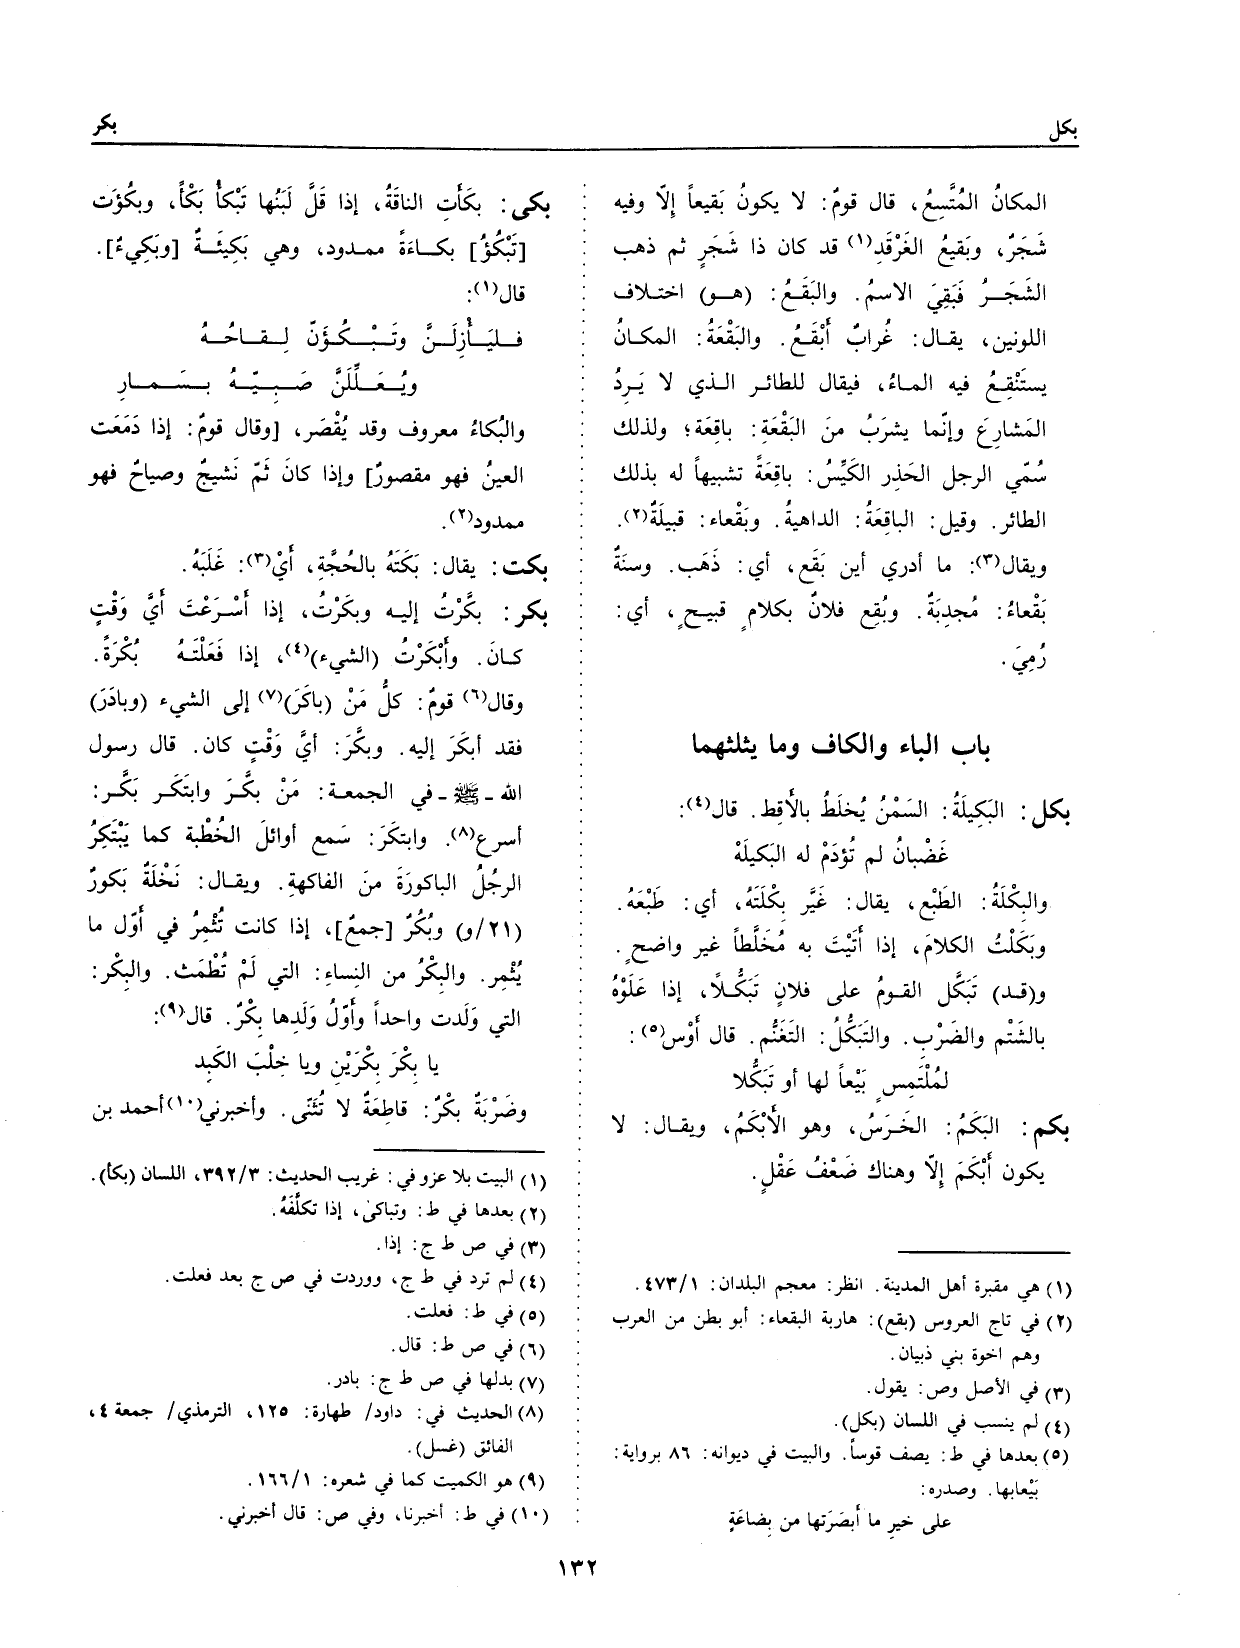 بكل
بكر
المكانُ المُتَّسِعُ، قال قومٌ: لا يكونُ بَقيعاً إلّا وفيه
شَجَرٌ، وبَقيعُ الغَرْقَدِ(١) قد كان ذا شَجَرٍ ثم ذهب
الشَجَـرُ فَبَقِيَ الاسمُ. والبَقَـعُ: (هـو) اختـلاف
اللونين، يقـال: غُرابٌ أَبْقَـعُ. والبَقْعَةُ: المكـانُ
يستَنْقِـعُ فيه المـاءُ، فيقال للطائـر الـذي لا يَـرِدُ
المَشارِعَ وإنّما يشرَبُ من البَقْعَةِ: باقِعَة؛ ولذلك
سُمّي الرجل الحَذِر الكَيِّسُ: باقِعَةً تشبيهاً له بذلك
الطائر. وقيل: الباقِعَةُ: الداهيةُ. وبَقْعاء: قبيلَةٌ(٢).
ويقال(٣): ما أدري أين بَقَع، أي: ذَهَب. وسنَةٌ
بَقْعاءُ: مُجدِبَةٌ. وبُقِع فلانٌ بكلامٍ قبيـحٍ، أي:
رُمِيَ.
باب الباء والكاف وما يثلثهما
بكل: البَكِيلَةُ: السَمْنُ يُخلَطُ بالأَقِط. قال(٤):
غَضْبانُ لم تُؤدَمْ له البَكيلَهْ
والبِكْلَةُ: الطَبْع، يقال: غَيَّر بِكْلَتَهُ، أي: طَبْعَهُ.
وبَكَلْتُ الكلامَ، إذا أَتَيْتَ به مُخَلَّطاً غير واضحٍ.
و(قـد) تَبَكَّل القـومُ على فلانٍ تَبَكُّـلًا، إذا عَلَوْهُ
بالشَتْم والضَرْبِ. والتَبَكُّلُ: التَغَنُّم. قال أَوْس(٥):
لمُلْتَمِسٍ بَيْعاً لها أو تَبَكُّلا
بكم: البَكَمُ: الخَرَسُ، وهو الأَبْكَمُ، ويقـال: لا
يكون أَبْكَمَ إلّا وهناك ضَعْفُ عَقْلٍ.
(١) هي مقبرة أهل المدينة. انظر: معجم البلدان: ٤٧٣/١.
(٢) في تاج العروس (بقع): هاربة البقعاء: أبو بطن من العرب
وهم اخوة بني ذبيان.
(٣) في الأصل وص: يقول.
(٤) لم ينسب في اللسان (بكل).
(٥) بعدها في ط: يصف قوساً. والبيت في ديوانه: ٨٦ برواية:
بَيْعابها. وصدره:
على خيرِ ما أبصَرَتها من بِضاعَةٍ
بكى: بكَأَتِ الناقَةُ، إذا قَلَّ لَبَنُها تَبْكأُ بَكْأً، وبكُؤَت
[تَبْكُؤُ] بكـاءَةً ممـدود، وهي بَكِيئَـةٌ [وبَكِيءٌ].
قال(١):
فـليَـأْزِلَـنَّ وتَـبْـكُـؤَنّ لِـقـاحُـهُ
ويُـعَـلِّلَنَّ صَـبِـيَّـهُ بِـسَـمـارِ
والبُكاءُ معروف وقد يُقْصَر، [وقال قومٌ: إذا دَمَعَت
العينُ فهو مقصورٌ] وإذا كانَ ثَمّ نَشيجٌ وصياحٌ فهو
ممدود(٢).
بكت: يقال: بَكَتَهُ بالحُجَّةِ، أيْ(٣): غَلَبَهُ.
بكر: بكَّرْتُ إليـه وبكَرْتُ، إذا أَسْـرَعْتَ أيَّ وَقْتٍ
كـانَ. وأَبْكَرْتُ (الشيء)(٤)، إذا فَعَلْتَـهُ بُكْرَةً.
وقال(٦) قومٌ: كلُّ مَنْ (باكَرَ)(٧) إلى الشيء (وبادَرَ)
فقد أبكَرَ إليه. وبكَّرَ: أيَّ وَقْتٍ كان. قال رسول
الله ـ ﷺ ـ في الجمعـة: مَنْ بكَّـرَ وابتَكَـر بَكَّـر:
أسرع(٨). وابتكَرَ: سَمع أوائلَ الخُطْبة كما يَبْتَكِرُ
الرجُلُ الباكورَةَ منَ الفاكهةِ. ويقـال: نَخْلَةٌ بَكورٌ
(٢١/و) وبُكُرٌ [جمعٌ]، إذا كانت تُثْمِرُ في أوّل ما
يُثْمِر. والبِكْرُ من النِساءِ: التي لَمْ تُطْمَث. والبِكْر:
التي وَلَدت واحداً وأوّلُ وَلَدِها بِكْرٌ. قال(٩):
يا بِكْرَ بِكْرَيْنِ ويا خِلْبَ الكَبِد
وضَرْبَةٌ بِكْرٌ: قاطِعَةٌ لا تُثَنّى. وأخبرني(١٠)أحمد بن
(١) البيت بلا عزو في: غريب الحديث: ٣٩٢/٣، اللسان (بكأ).
(٢) بعدها في ط: وتباكىٰ، إذا تكلَّفَهُ.
(٣) في ص ط ج: إذا.
(٤) لم ترد في ط ج، ووردت في ص ج بعد فعلت.
(٥) في ط: فعلت.
(٦) في ص ط: قال.
(٧) بدلها في ص ط ج: بادر.
(٨) الحديث في: داود/ طهارة: ١٢٥، الترمذي/ جمعة ٤،
الفائق (غسل).
(٩) هو الكميت كما في شعره: ١٦٦/١.
(١٠) في ط: أخبرنا، وفي ص: قال أخبرني.
١٣٢